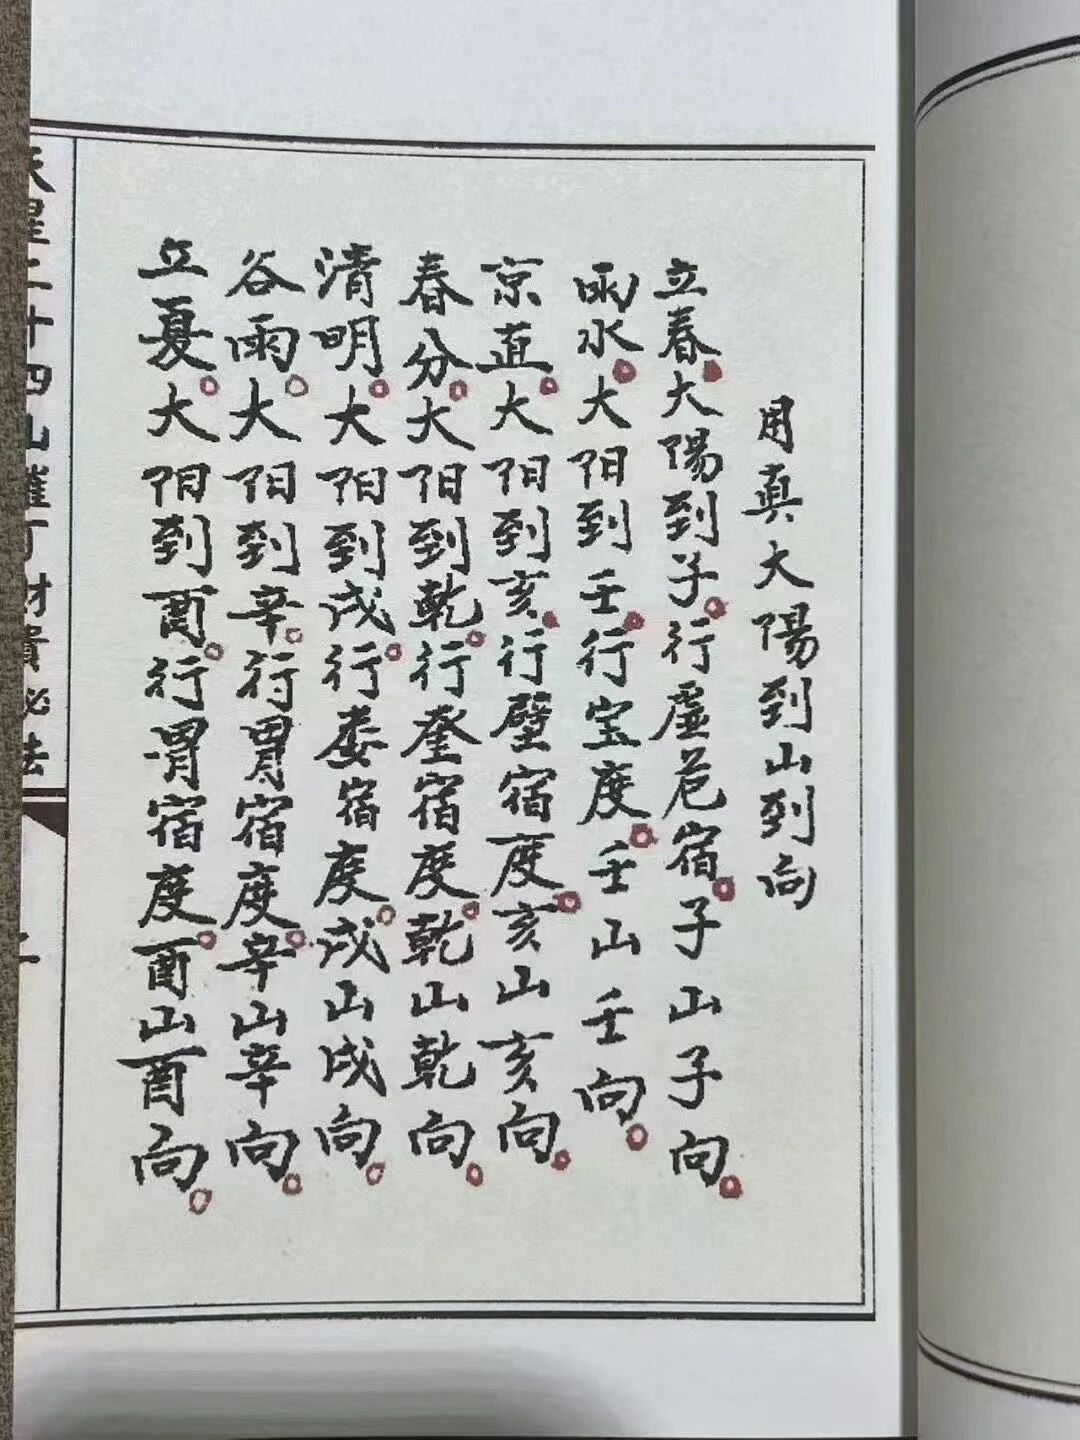 用真大陽到山到向
立春大陽到子行虚危宿子山子向
雨水大阳到壬行宝度壬山壬向
京直大阳到亥行壁宿度亥山亥向
春分大阳到乾行奎宿度乾山乾向
清明大阳到戌行娄宿度戌山戌向
谷雨大阳到辛行胃宿度辛山辛向
立夏大阳到酉行胃宿度酉山酉向
天星二十四山催丁财貴秘法
二